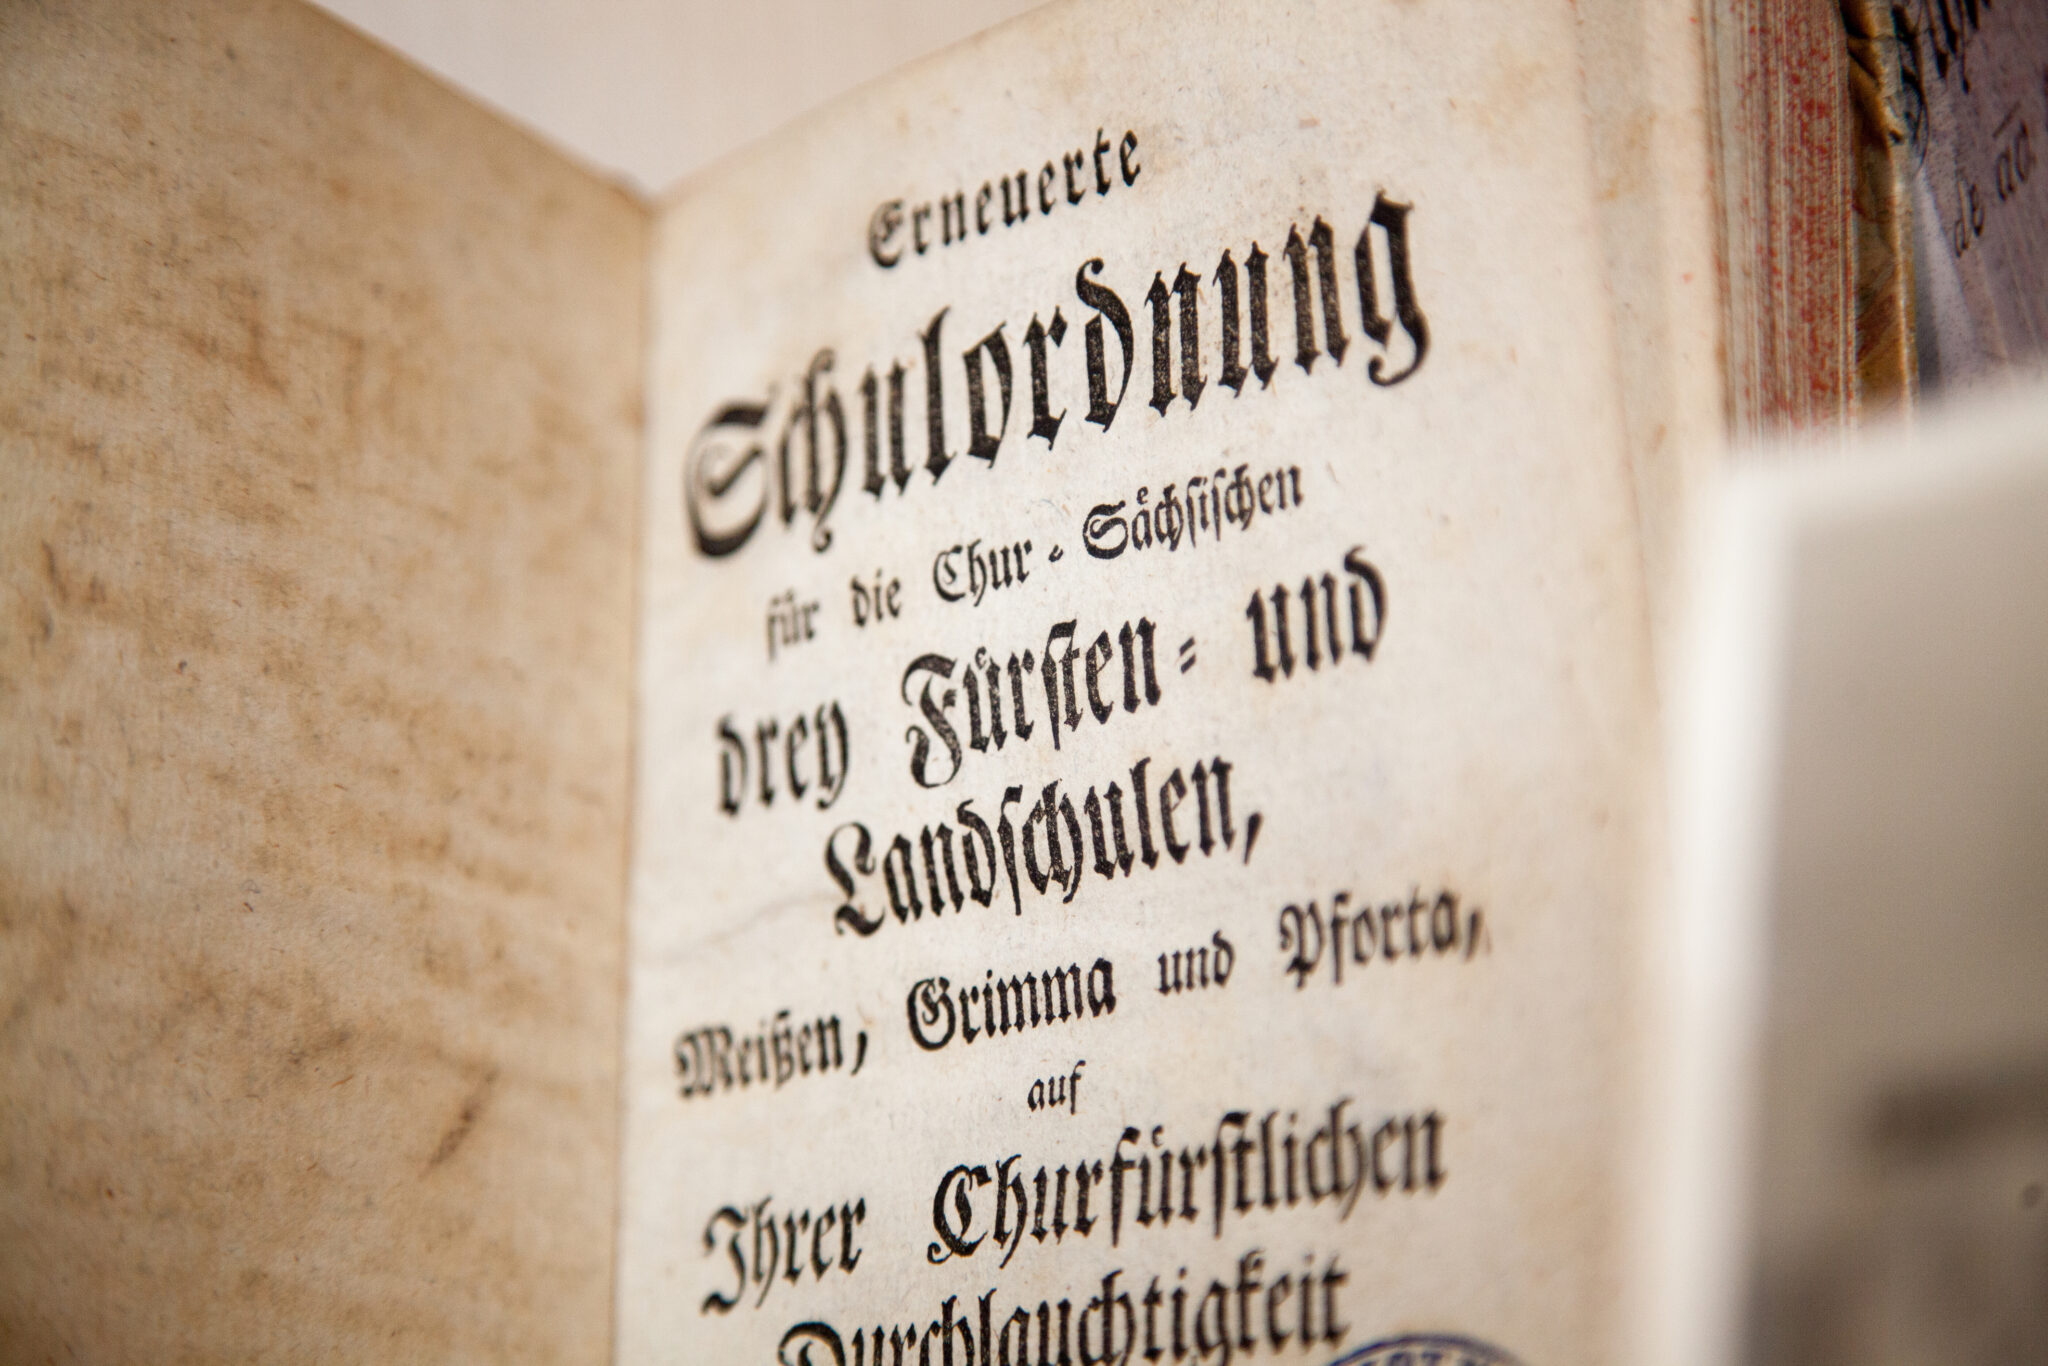 Erneuerte
Schulordnung
für die Chur-Sächsischen
drey Fürsten- und
Landschulen,
Meißen, Grimma und Pforta,
auf
Ihrer Churfürstlichen
Durchlauchtigkeit
de ad